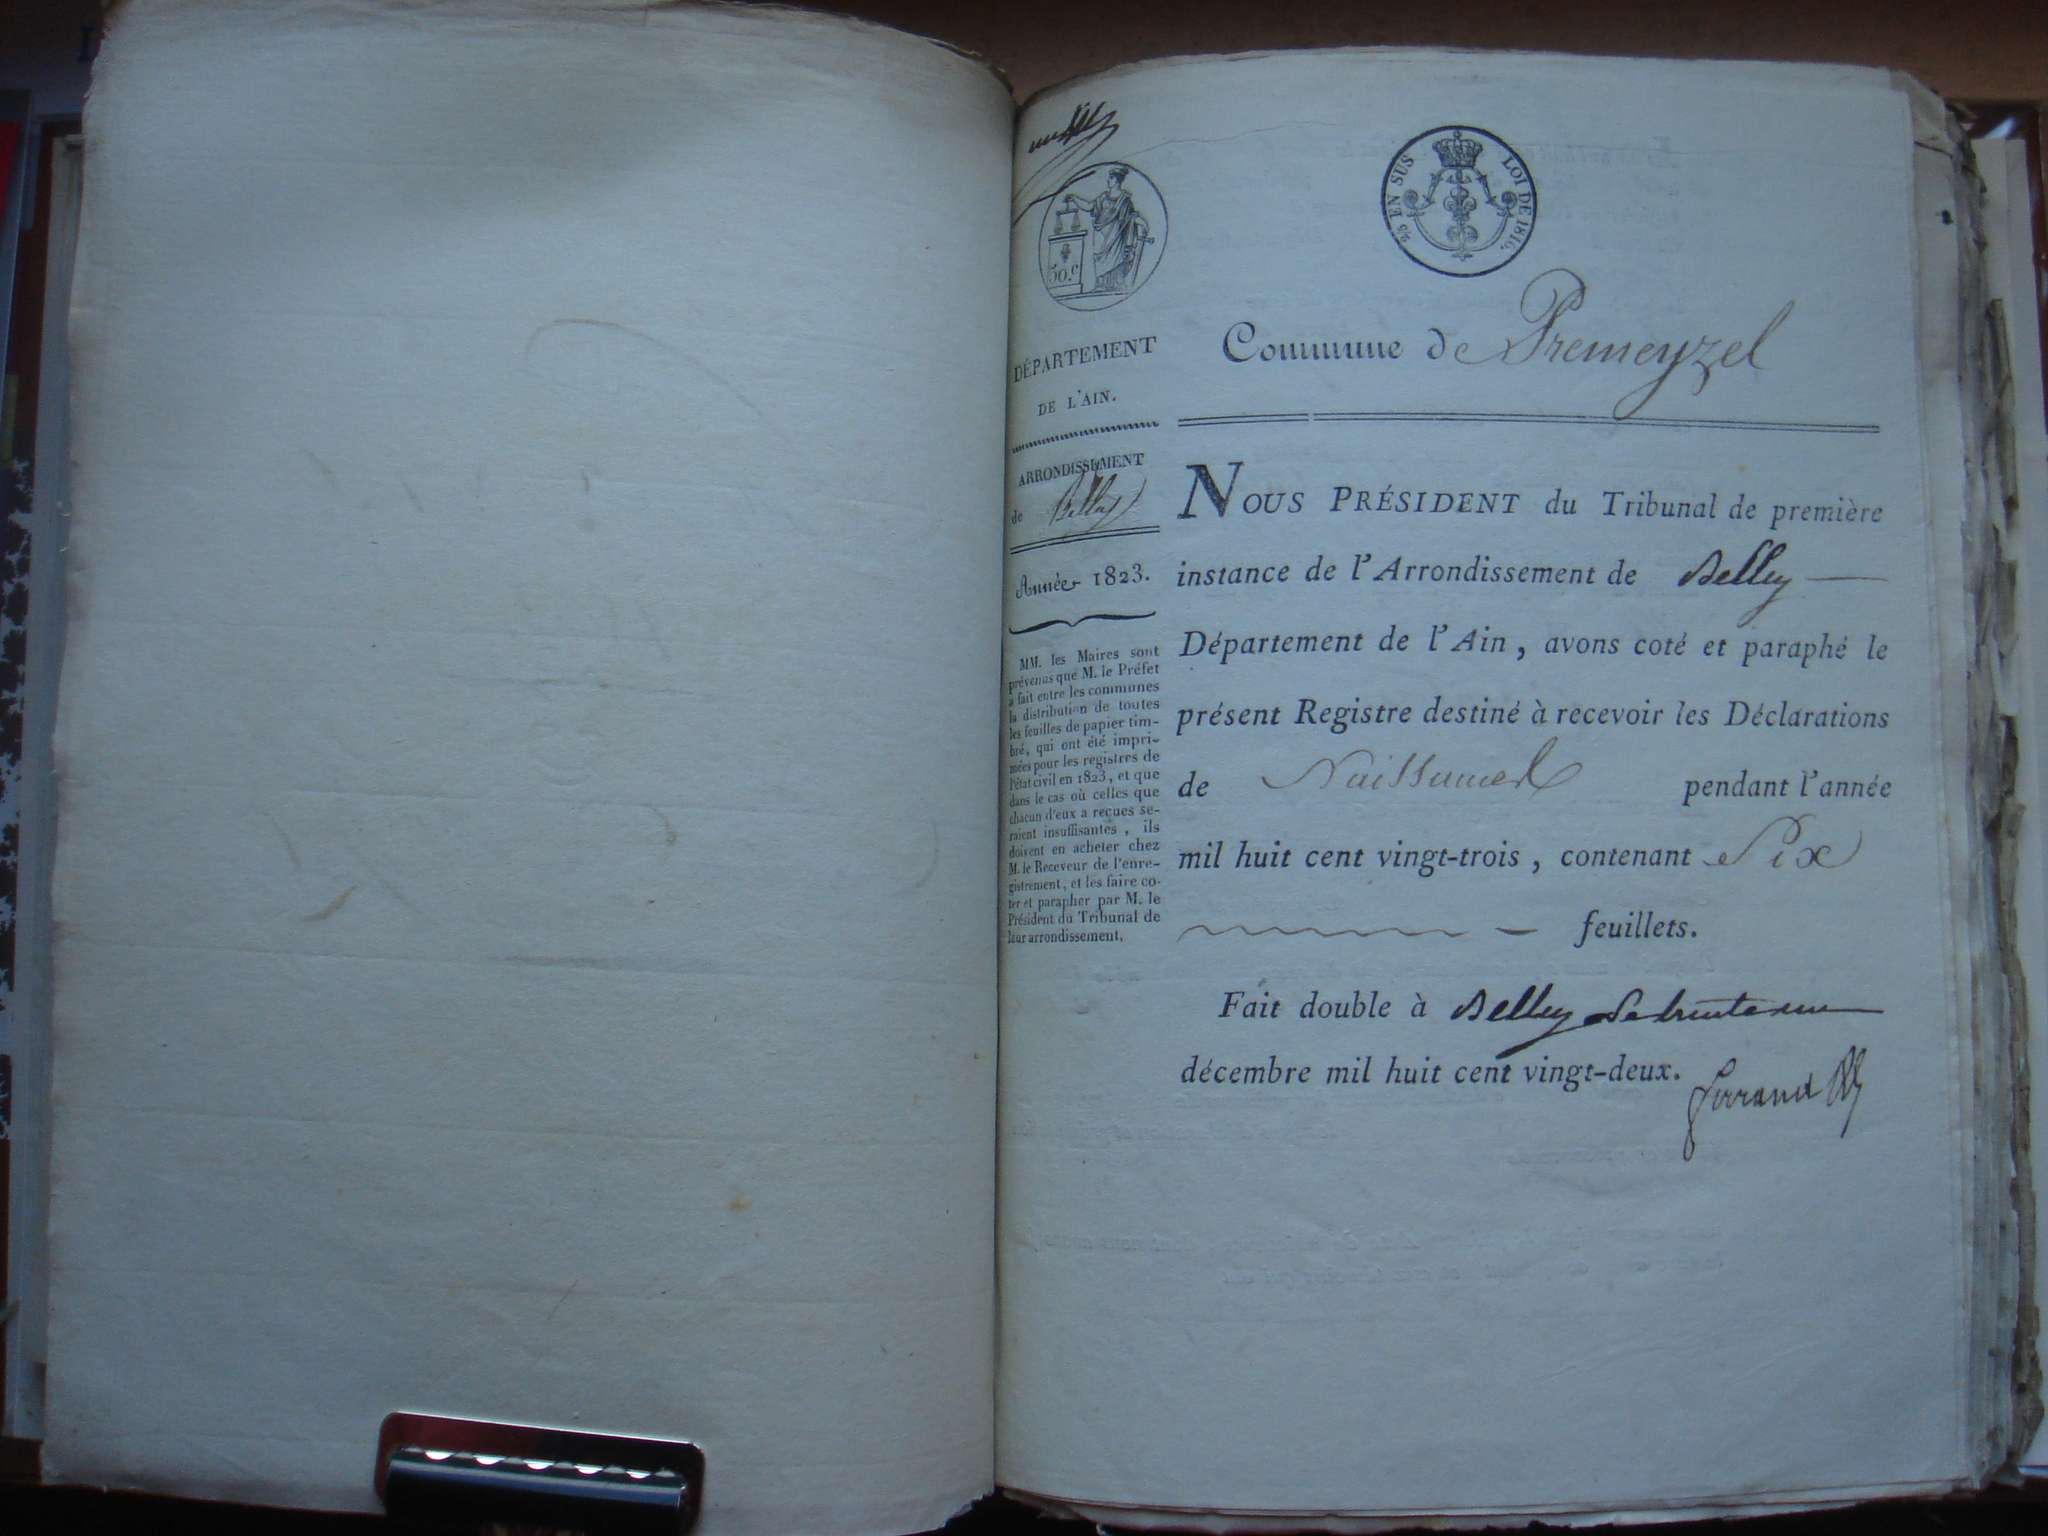 25 EN SUS LOI DE 1816.
50.c
DÉPARTEMENT
DE L'AIN.
ARRONDISSEMENT
de Belley
Année 1823.
MM. les Maires sont
prévenus que M. le Préfet
a fait entre les communes
la distribution de toutes
les feuilles de papier tim-
bré, qui ont été impri-
mées pour les registres de
l'état civil en 1823, et que
dans le cas où celles que
chacun d'eux a reçues se-
raient insuffisantes, ils
doivent en acheter chez
M. le Receveur de l'enre-
gistrement, et les faire co-
ter et parapher par M. le
Président du Tribunal de
leur arrondissement.
Commune de Premeyzel
NOUS PRÉSIDENT du Tribunal de première
instance de l'Arrondissement de Belley
Département de l'Ain, avons coté et paraphé le
présent Registre destiné à recevoir les Déclarations
de Naissances pendant l'année
mil huit cent vingt-trois, contenant Six
feuillets.
Fait double à Belley le
décembre mil huit cent vingt-deux.